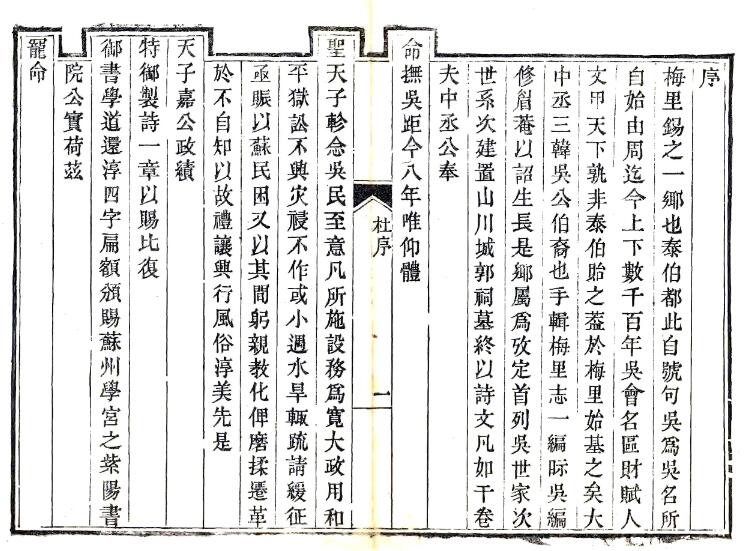 序
梅里錫之一鄉也泰伯都此自號句吳爲吳名所
自始由周迄今上下數千百年吳會名區財賦人
文甲天下孰非泰伯貽之葢於梅里始基之矣大
中丞三韓吳公伯裔也手輯梅里志一編眎吳編
修睂菴以詔生長是鄉屬爲攷定首列吳世家次
世系次建置山川城郭祠墓終以詩文凡如干卷
夫中丞公奉
命撫吳距今八年唯仰體
杜序
一
聖天子軫念吳民至意凡所施設務爲寬大政用和
平獄訟不興灾祲不作或小遇水旱輙疏請緩征
亟賑以蘇民困又以其間躬親教化俾磨揉遷革
於不自知以故禮讓興行風俗淳美先是
天子嘉公政績
特御製詩一章以賜比復
御書學道還淳四字扁額頒賜蘇州學宮之紫陽書
院公實荷茲
寵命